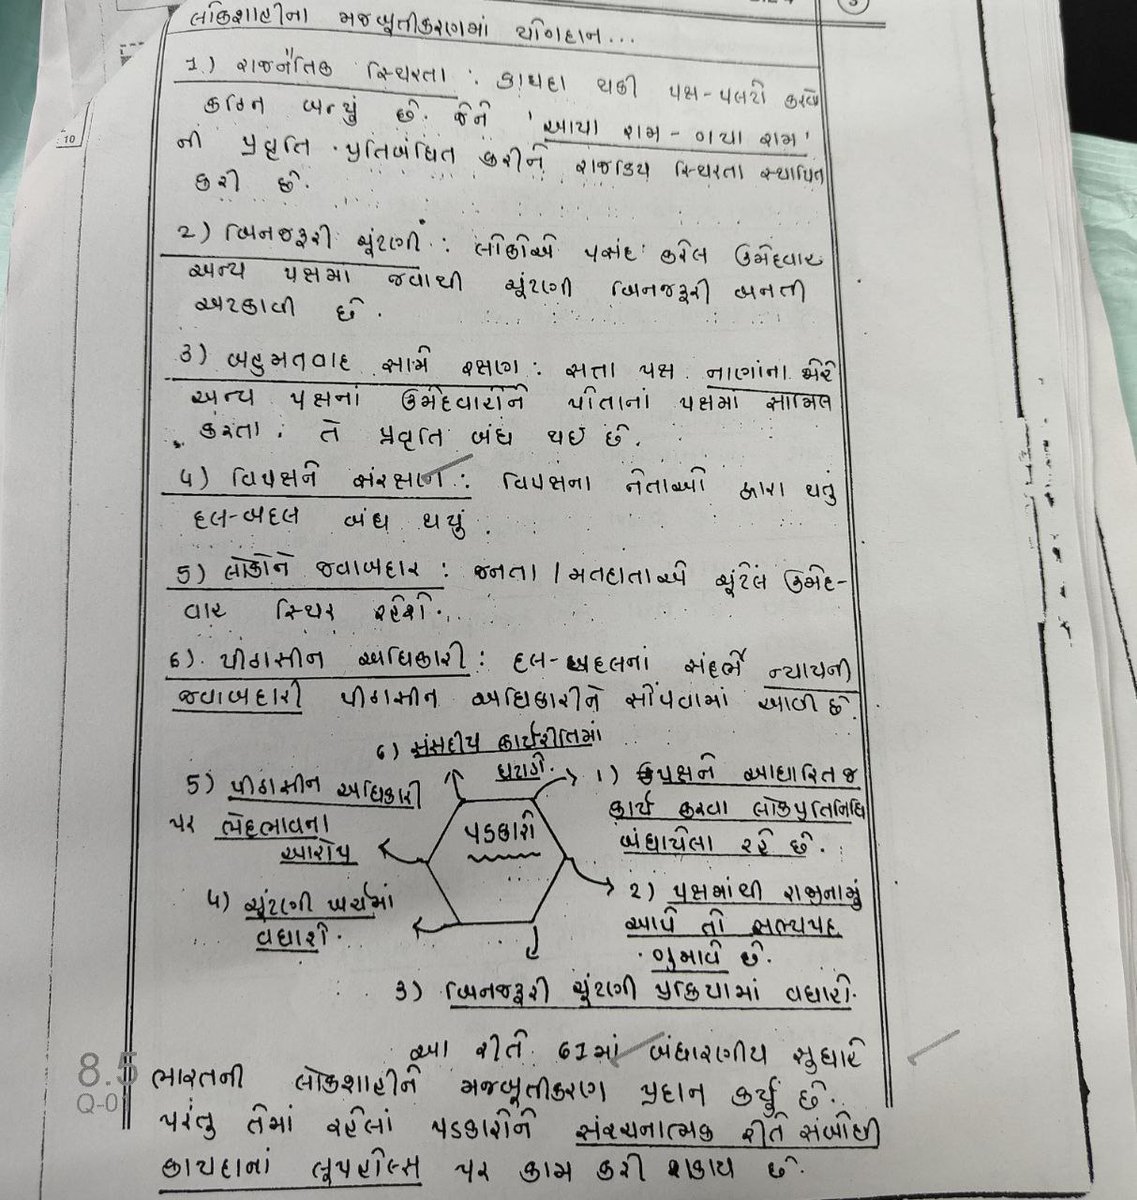 લોકશાહીના મજબૂતીકરણમાં યોગદાન...
10
1) રાજનૈતિક સ્થિરતા : કાયદા થકી પક્ષ-પલટો કરવો
કઠિન બન્યું છે. જેને 'આયા રામ - ગયા રામ'
ની પ્રવૃતિ પ્રતિબંધિત કરીને રાજકિય સ્થિરતા સ્થાપિત
કરી છે.
2) બિનજરૂરી ચૂંટણી : લોકોએ પસંદ કરેલ ઉમેદવાર
અન્ય પક્ષમાં જવાથી ચૂંટણી બિનજરૂરી બનતી
અટકાવી છે.
3) બહુમતવાદ સામે રક્ષણ : સત્તા પક્ષ નાણાંના જોરે
અન્ય પક્ષનાં ઉમેદવારોને પોતાનાં પક્ષમાં સામિલ
કરતા. તે પ્રવૃતિ બંધ થઈ છે.
4) વિપક્ષને સંરક્ષણ : વિપક્ષના નેતાઓ દ્વારા થતું
દલ-બદલ બંધ થયું.
5) લોકોને જવાબદાર : જનતા / મતદાતાએ ચૂંટેલ ઉમેદ-
વાર સ્થિર રહેશે.
6). પીઠાસીન અધિકારી : દલ-બદલનાં સંદર્ભે ન્યાયની
જવાબદારી પીઠાસીન અધિકારીને સોંપવામાં આવી છે.
6) સંસદીય કાર્યરીતિમાં
ઘટાડો.
5) પીઠાસીન અધિકારી
પર ભેદભાવના
આરોપ
પડકારો
1) પક્ષને આધારિત જ
કાર્ય કરવા લોકપ્રતિનિધિ
બંધાયેલા રહે છે.
4) ચૂંટણી ખર્ચમાં
વધારો.
2) પક્ષમાંથી રાજીનામું
આપે તો સભ્યપદ
ગુમાવે છે.
3) બિનજરૂરી ચૂંટણી પ્રક્રિયામાં વધારો.
આ રીતે 61માં બંધારણીય સુધારે
ભારતની લોકશાહીને મજબૂતીકરણ પ્રદાન કર્યું છે.
પરંતુ તેમાં રહેલાં પડકારોને સંરચનાત્મક રીતે સંબોધી
કાયદાનાં લૂપહોલ્સ પર કામ કરી શકાય છે.
8.5
Q-0